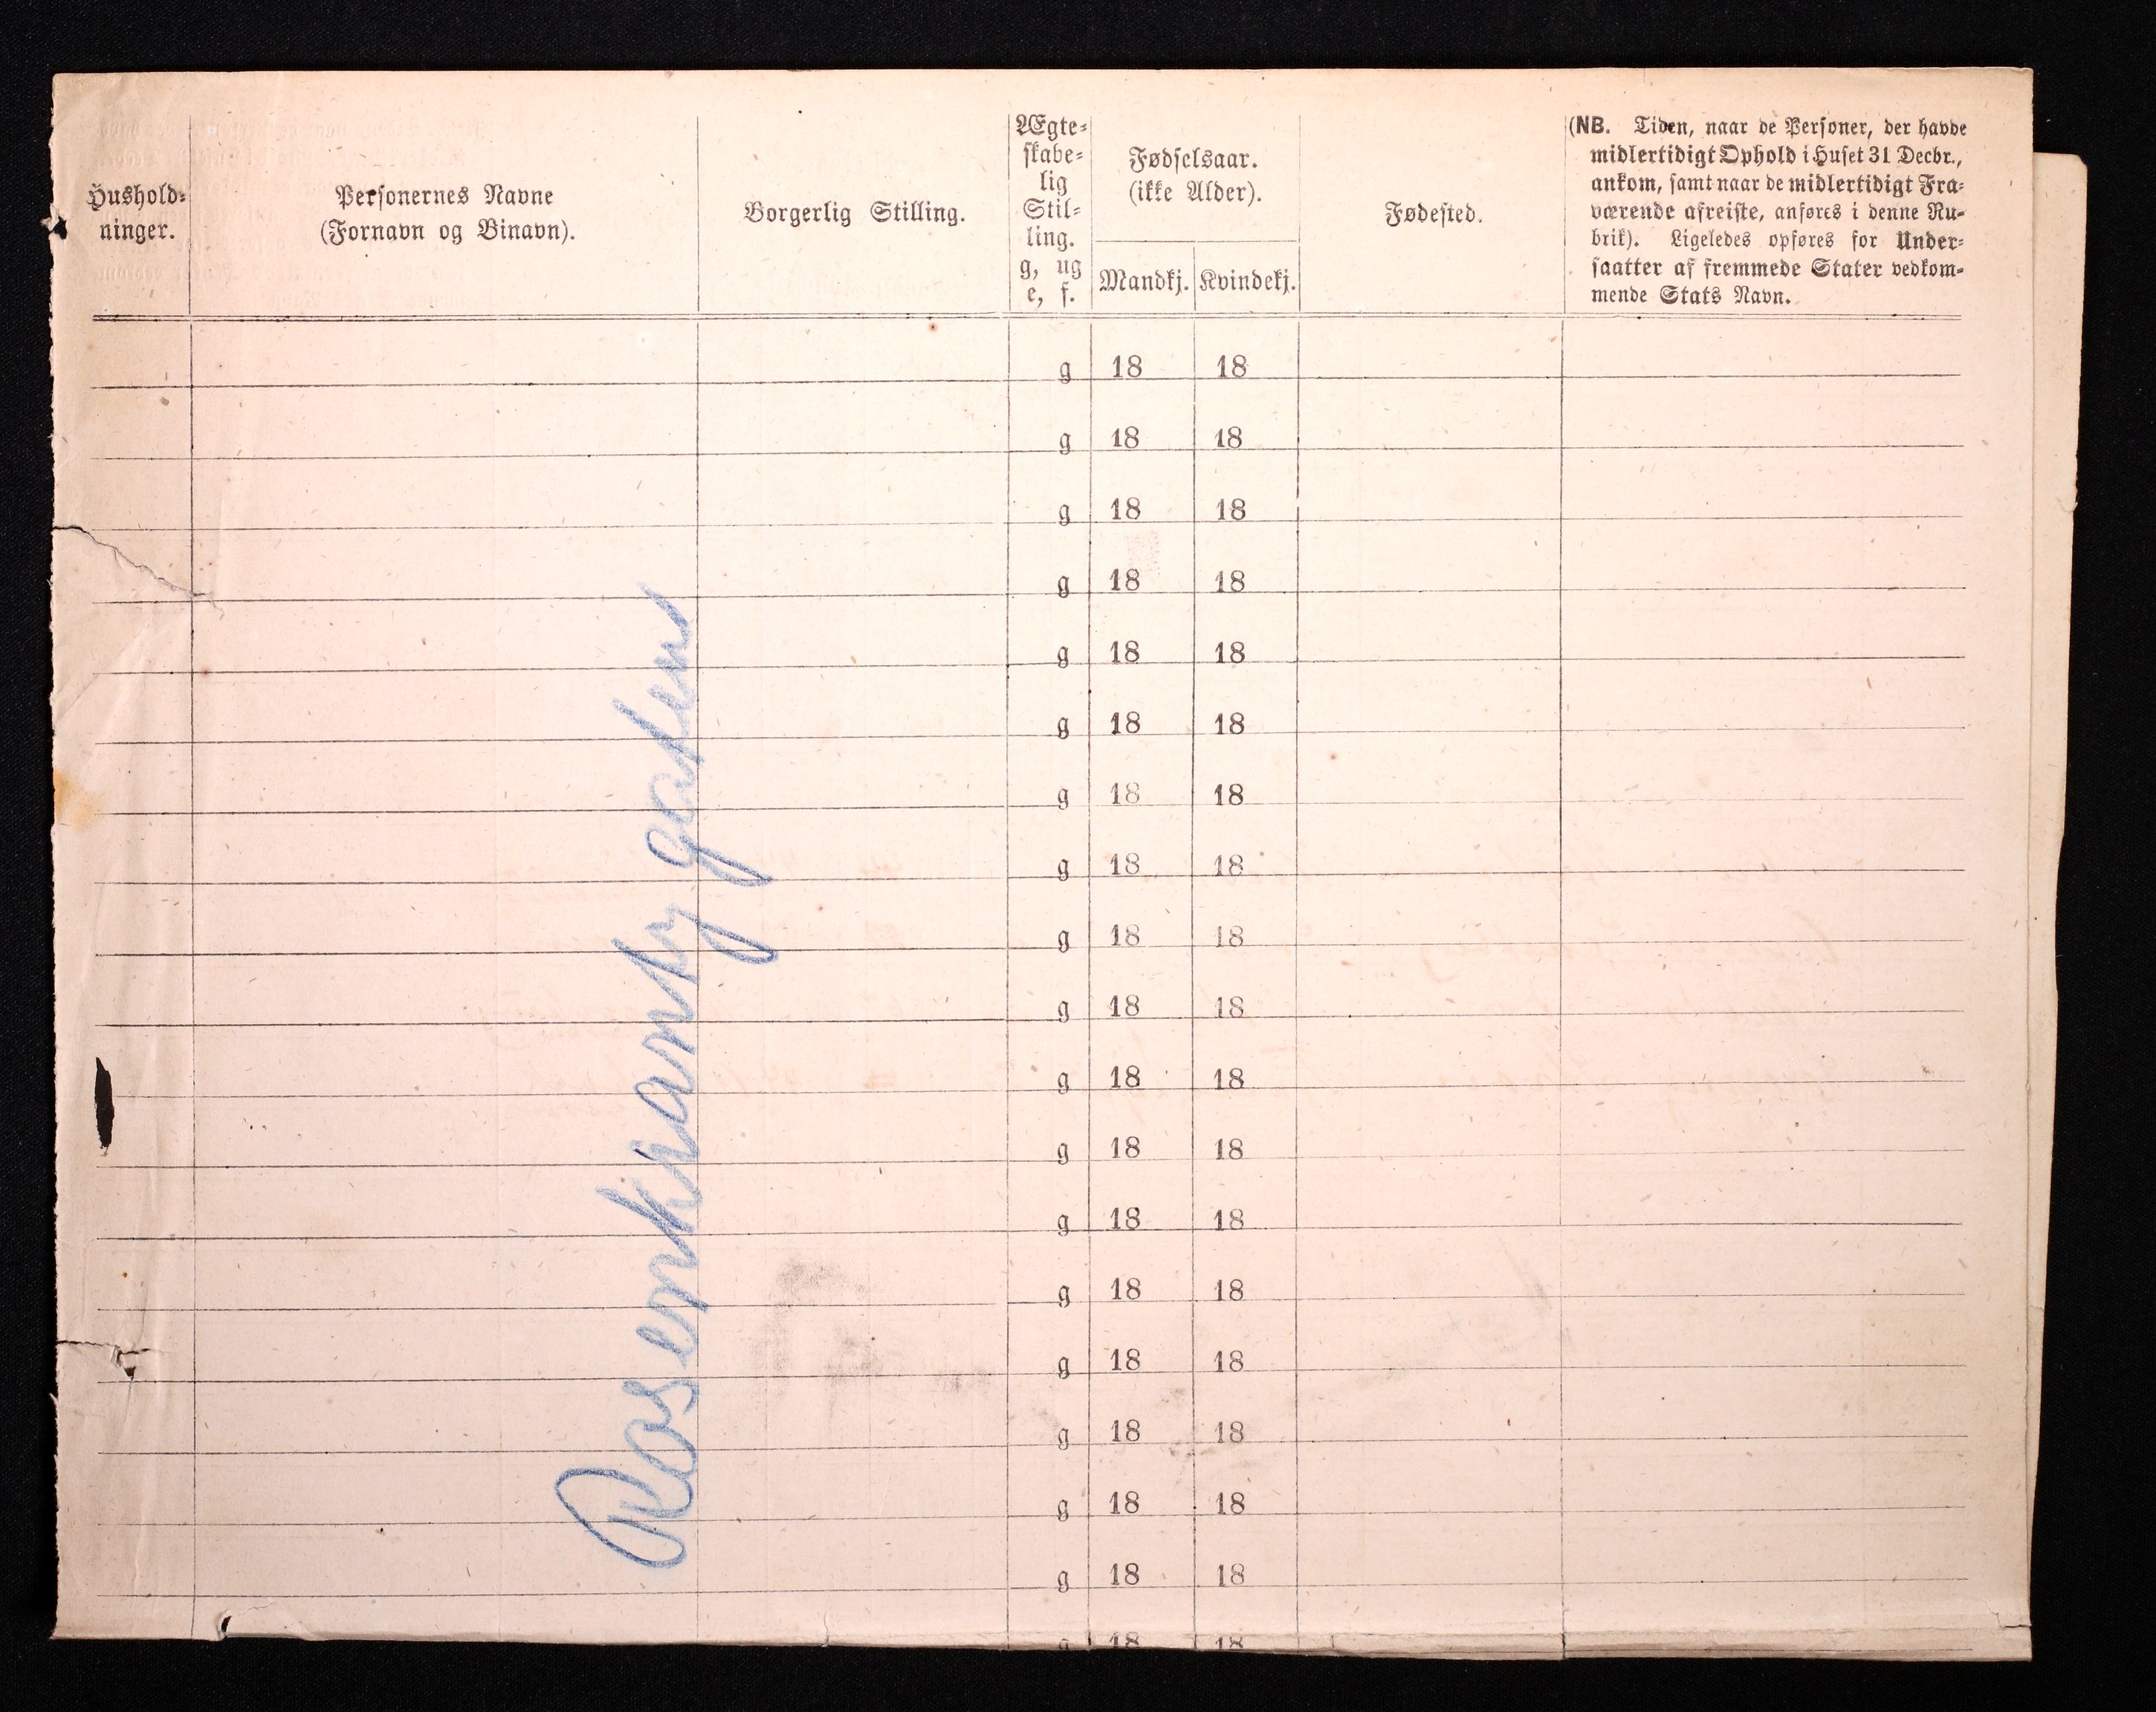 Hushold-
ninger.
Personernes Navne
(Fornavn og Binavn).
Borgerlig Stilling.
Ægte-
skabe-
lig
Stil-
ling.
g, ug
e, f.
Fødselsaar.
(ikke Alder).
Mandkj. Kvindekj.
Fødested.
(NB. Tiden, naar de Personer, der havde
midlertidigt Ophold i Huset 31 Decbr.,
ankom, samt naar de midlertidigt Fra-
værende afreiste, anføres i denne Ru-
brik). Ligeledes opføres for Under-
saatter af fremmede Stater vedkom-
mende Stats Navn.
g 18 18
g 18 18
g 18 18
g 18 18
g 18 18
g 18 18
g 18 18
g 18 18
g 18 18
g 18 18
g 18 18
g 18 18
g 18 18
g 18 18
g 18 18
g 18 18
g 18 18
g 18 18
g 18 18
Rosenkrantzgatens